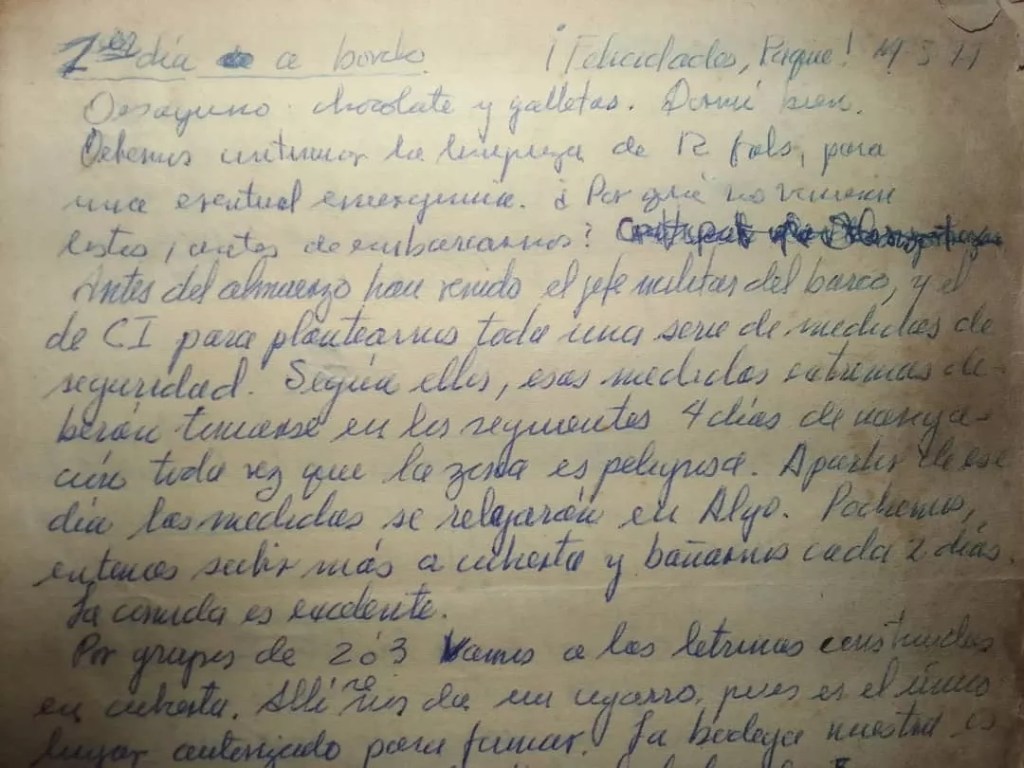 1er día a bordo. ¡Felicidades, Roque! M-5-11
Desayuno: chocolate y galletas. Dormí bien.
Debemos continuar la limpieza de 12 fals, para
una eventual emergencia. ¿Por qué no vinieron
listos, antes de embarcarnos?
Antes del almuerzo han venido el jefe militar del barco, y el
de CI para plantearnos toda una serie de medidas de
seguridad. Según ellos, esas medidas extremas de-
berán tomarse en los siguientes 4 días de navega-
ción toda vez que la zona es peligrosa. A partir de ese
día las medidas se relajarán en Algo. Podremos,
entonces subir más a cubierta y bañarnos cada 2 días.
La comida es excelente.
Por grupos de 2 ó 3 vamos a las letrinas construidas
en cubierta. Allí se nos da un cigarro, pues es el único
lugar autorizado para fumar. La bodega nuestra es